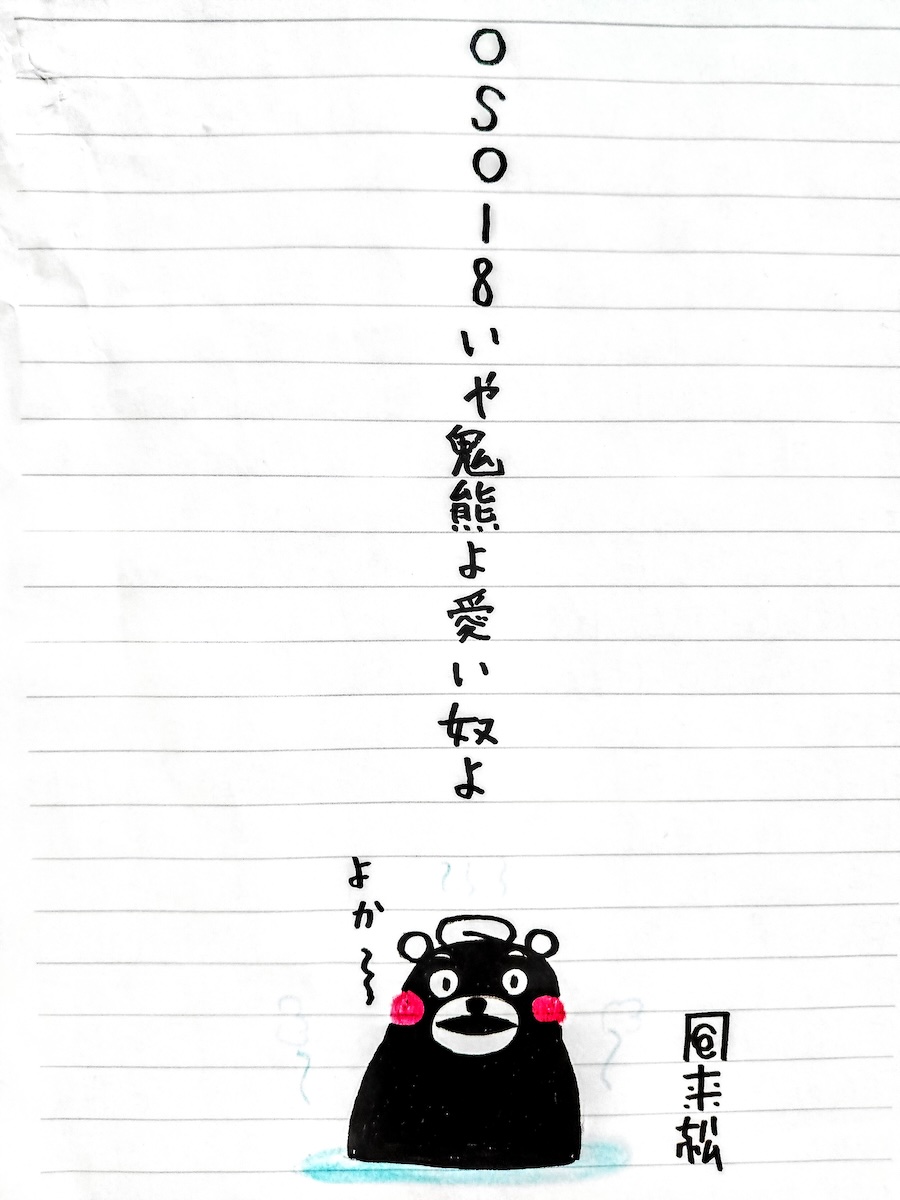 OSO18いや鬼熊よ愛い奴よ
よか〜
来松